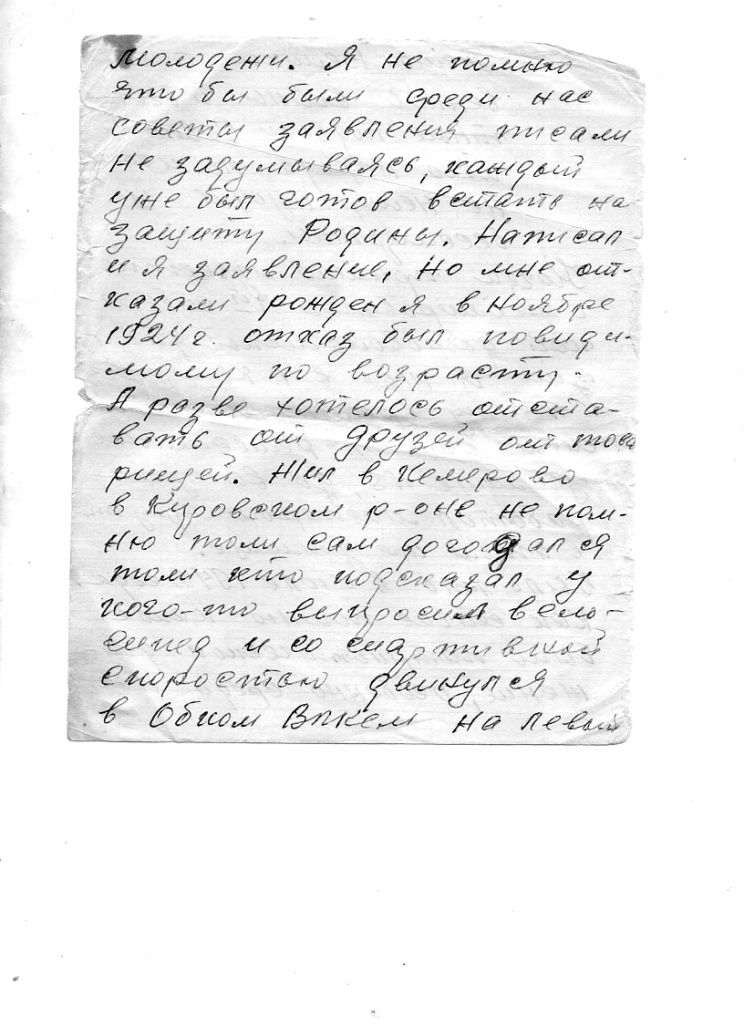 молодежи. Я не помню
что бы были среди нас
советы заявления писали
не задумываясь, каждый
уже был готов встать на
защиту Родины. Написал
и я заявление, но мне от-
казали рожден я в ноябре
1924г. отказ был повиди-
мому по возрасту.
А разве хотелось отста-
вать от друзей от това
рищей. Жил в Кемерово
в Кировском р-оне не пом-
ню толи сам догодался
толи кто подсказал у
кого-то выпросил вело-
сипед и со спартивной
скоростью двинулся
в Обком Влкем на левый